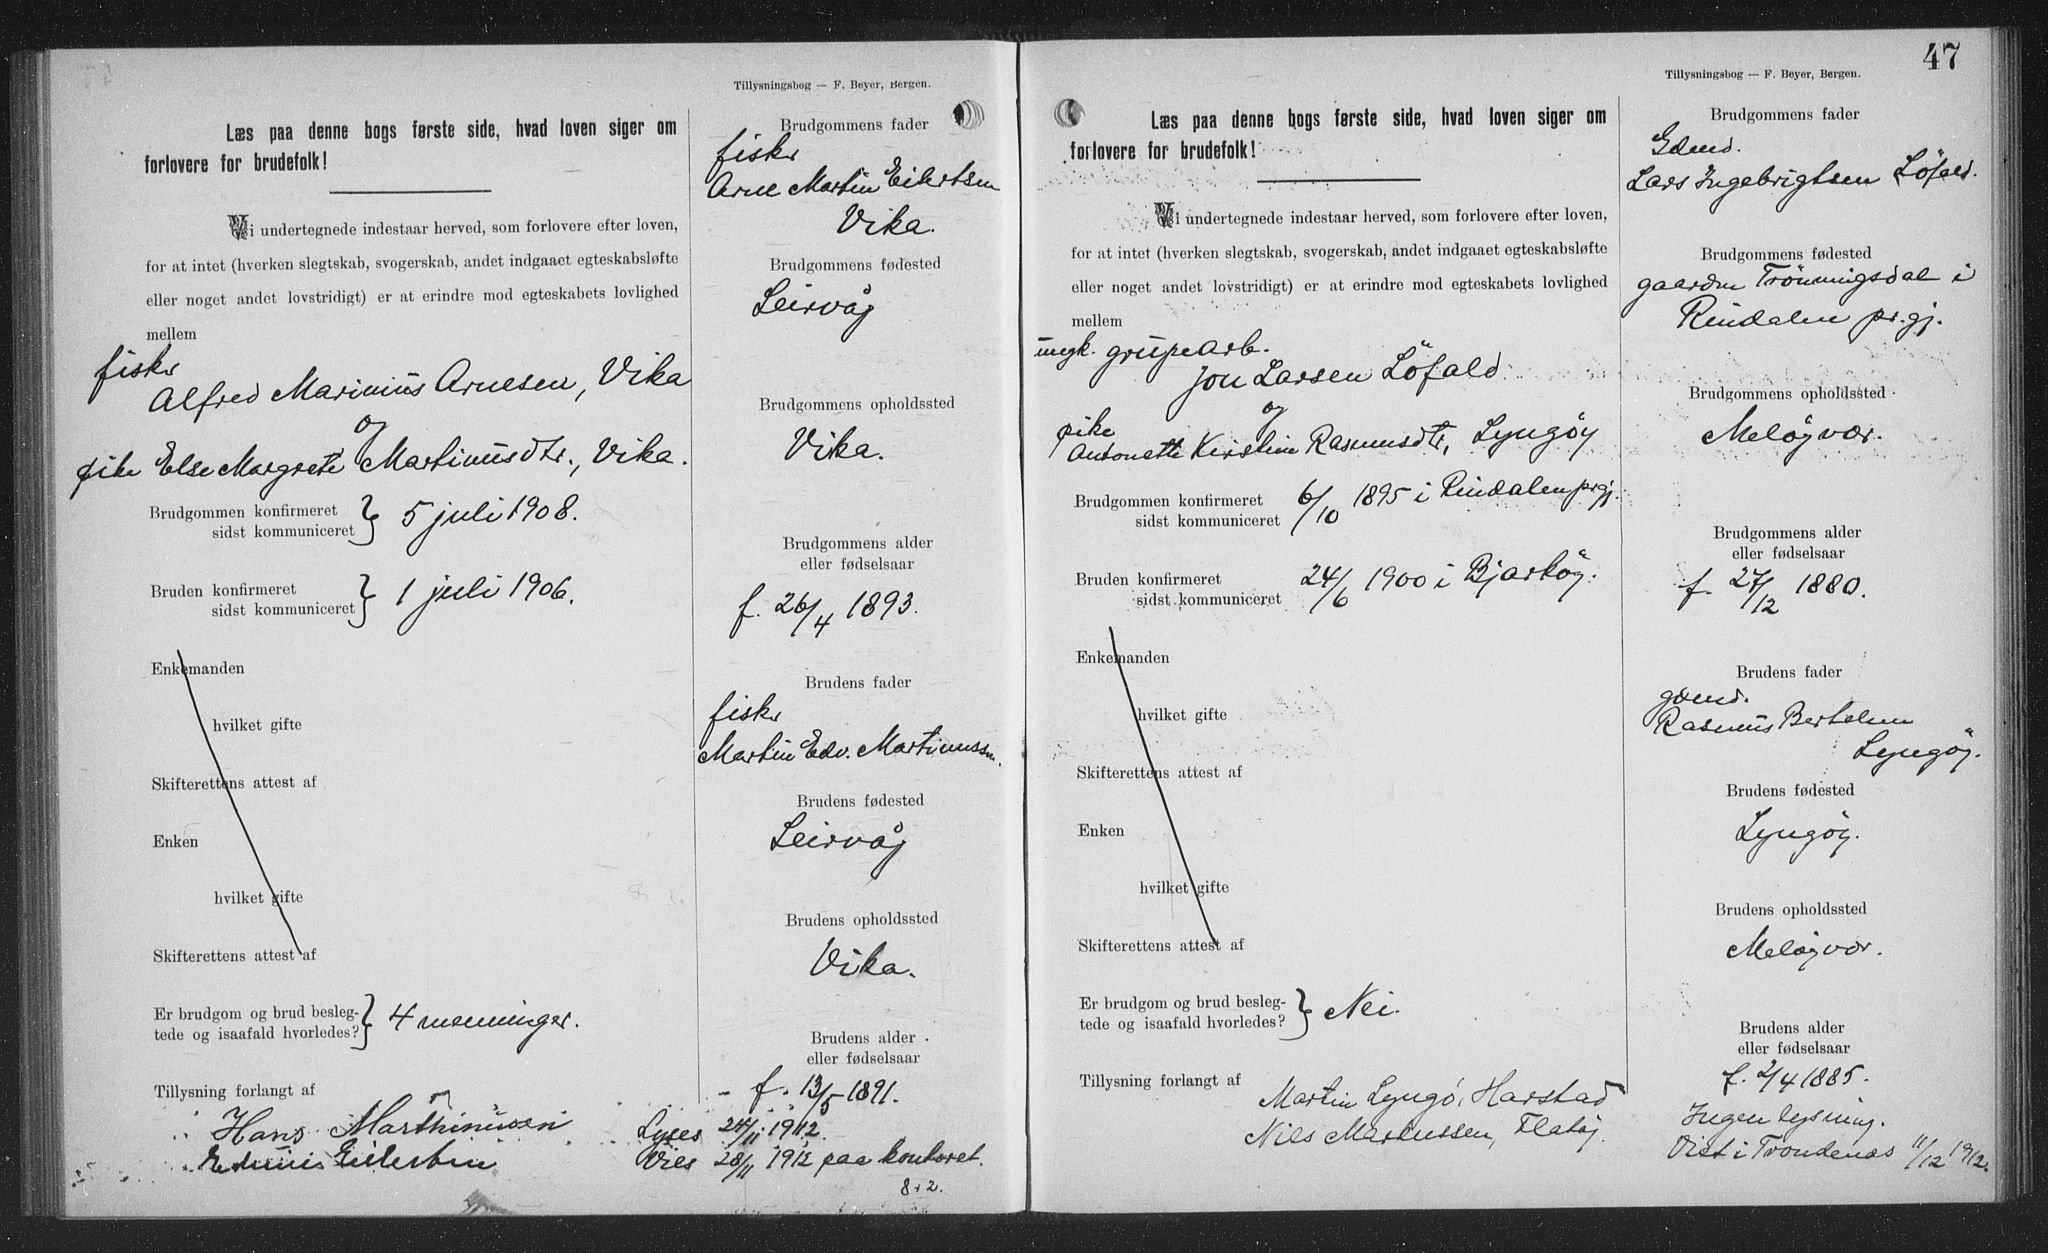 Tillysningsbog — F. Beyer, Bergen.
Læs paa denne bogs første side, hvad loven siger om
forlovere for brudefolk!
Vi undertegnede indestaar herved, som forlovere efter loven,
for at intet (hverken slegtskab, svogerskab, andet indgaaet egteskabsløfte
eller noget andet lovstridigt) er at erindre mod egteskabets lovlighed
mellem
fisker
Alfred Marinius Arnesen, Vika
og
pike Else Margrete Martinusdtr., Vika.
Brudgommen konfirmeret
sidst kommuniceret } 5 juli 1908.
Bruden konfirmeret
sidst kommuniceret } 1 juli 1906.
Enkemanden
hvilket gifte
Skifterettens attest af
Enken
hvilket gifte
Skifterettens attest af
Er brudgom og brud besleg-
tede og isaafald hvorledes? } 4 menninger.
Tillysning forlangt af
Hans Marthinusen
Edvin Eilertsen
Brudgommens fader
fisker
Arne Martin Eilertsen
Vika.
Brudgommens fødested
Leirvåg
Brudgommens opholdssted
Vika.
Brudgommens alder
eller fødselsaar
f. 26/4 1893.
Brudens fader
fisker
Martin Edv. Martinussen.
Brudens fødested
Leirvåg
Brudens opholdssted
Vika.
Brudens alder
eller fødselsaar
f. 13/5 1891.
Lyses 24/11 1912.
Vies 28/11 1912 paa kontoret.
8+2.
47
Tillysningsbog — F. Beyer, Bergen.
Læs paa denne bogs første side, hvad loven siger om
forlovere for brudefolk!
Vi undertegnede indestaar herved, som forlovere efter loven,
for at intet (hverken slegtskab, svogerskab, andet indgaaet egteskabsløfte
eller noget andet lovstridigt) er at erindre mod egteskabets lovlighed
mellem
ungk. grupearb.
Jon Larsen Löfald
og
pike
Antonette Kirstine Rasmusdtr, Lyngöy
Brudgommen konfirmeret
sidst kommuniceret 6/10 1895 i Rindalen prgj.
Bruden konfirmeret
sidst kommuniceret 24/6 1900 i Bjarköy.
Enkemanden
hvilket gifte
Skifterettens attest af
Enken
hvilket gifte
Skifterettens attest af
Er brudgom og brud besleg-
tede og isaafald hvorledes? } Nei.
Tillysning forlangt af
Martin Lyngö, Harstad
Nils Markussen, Flatöy.
Brudgommens fader
Gdmd.
Lars Ingebrigtsen Löfald.
Brudgommens fødested
gaarden Trönningsdal i
Rindalen pr.gj.
Brudgommens opholdssted
Melöyvær.
Brudgommens alder
eller fødselsaar
f. 27/12 1880.
Brudens fader
gdmd.
Rasmus Bertelsen
Lyngöy.
Brudens fødested
Lyngöy.
Brudens opholdssted
Melöyvær.
Brudens alder
eller fødselsaar
f. 2/4 1885.
Ingen lysning.
Viet i Trondenæs 11/12 1912.